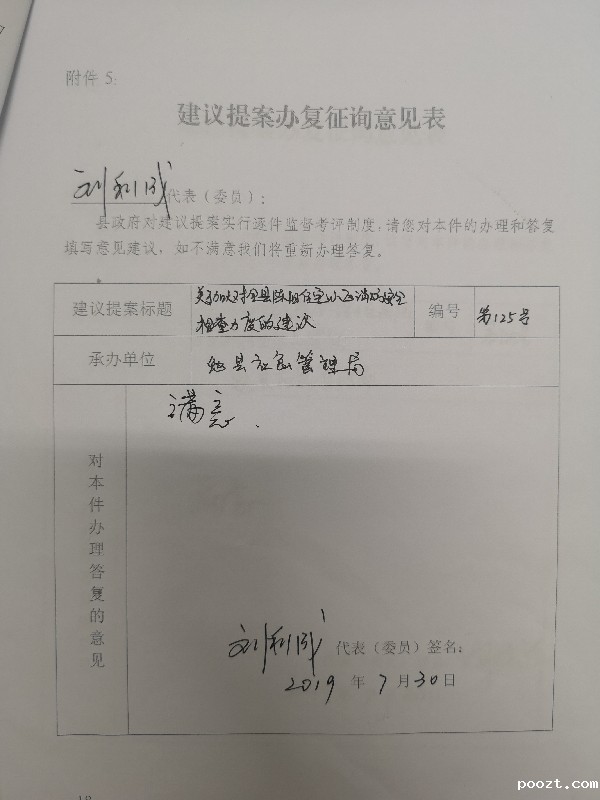 附件 5:
建议提案办复征询意见表
刘利成代表（委员）:
县政府对建议提案实行逐件监督考评制度,请您对本件的办理和答复
填写意见建议，如不满意我们将重新办理答复。
建议提案标题
关于加大对全县陈旧住宅小区消防安全
检查力度的建议
编号
第125号
承办单位
勉县应急管理局
满意.
对本件办理答复的意见
刘利成 代表（委员）签名:
2019 年 7 月 30 日
poozt.com